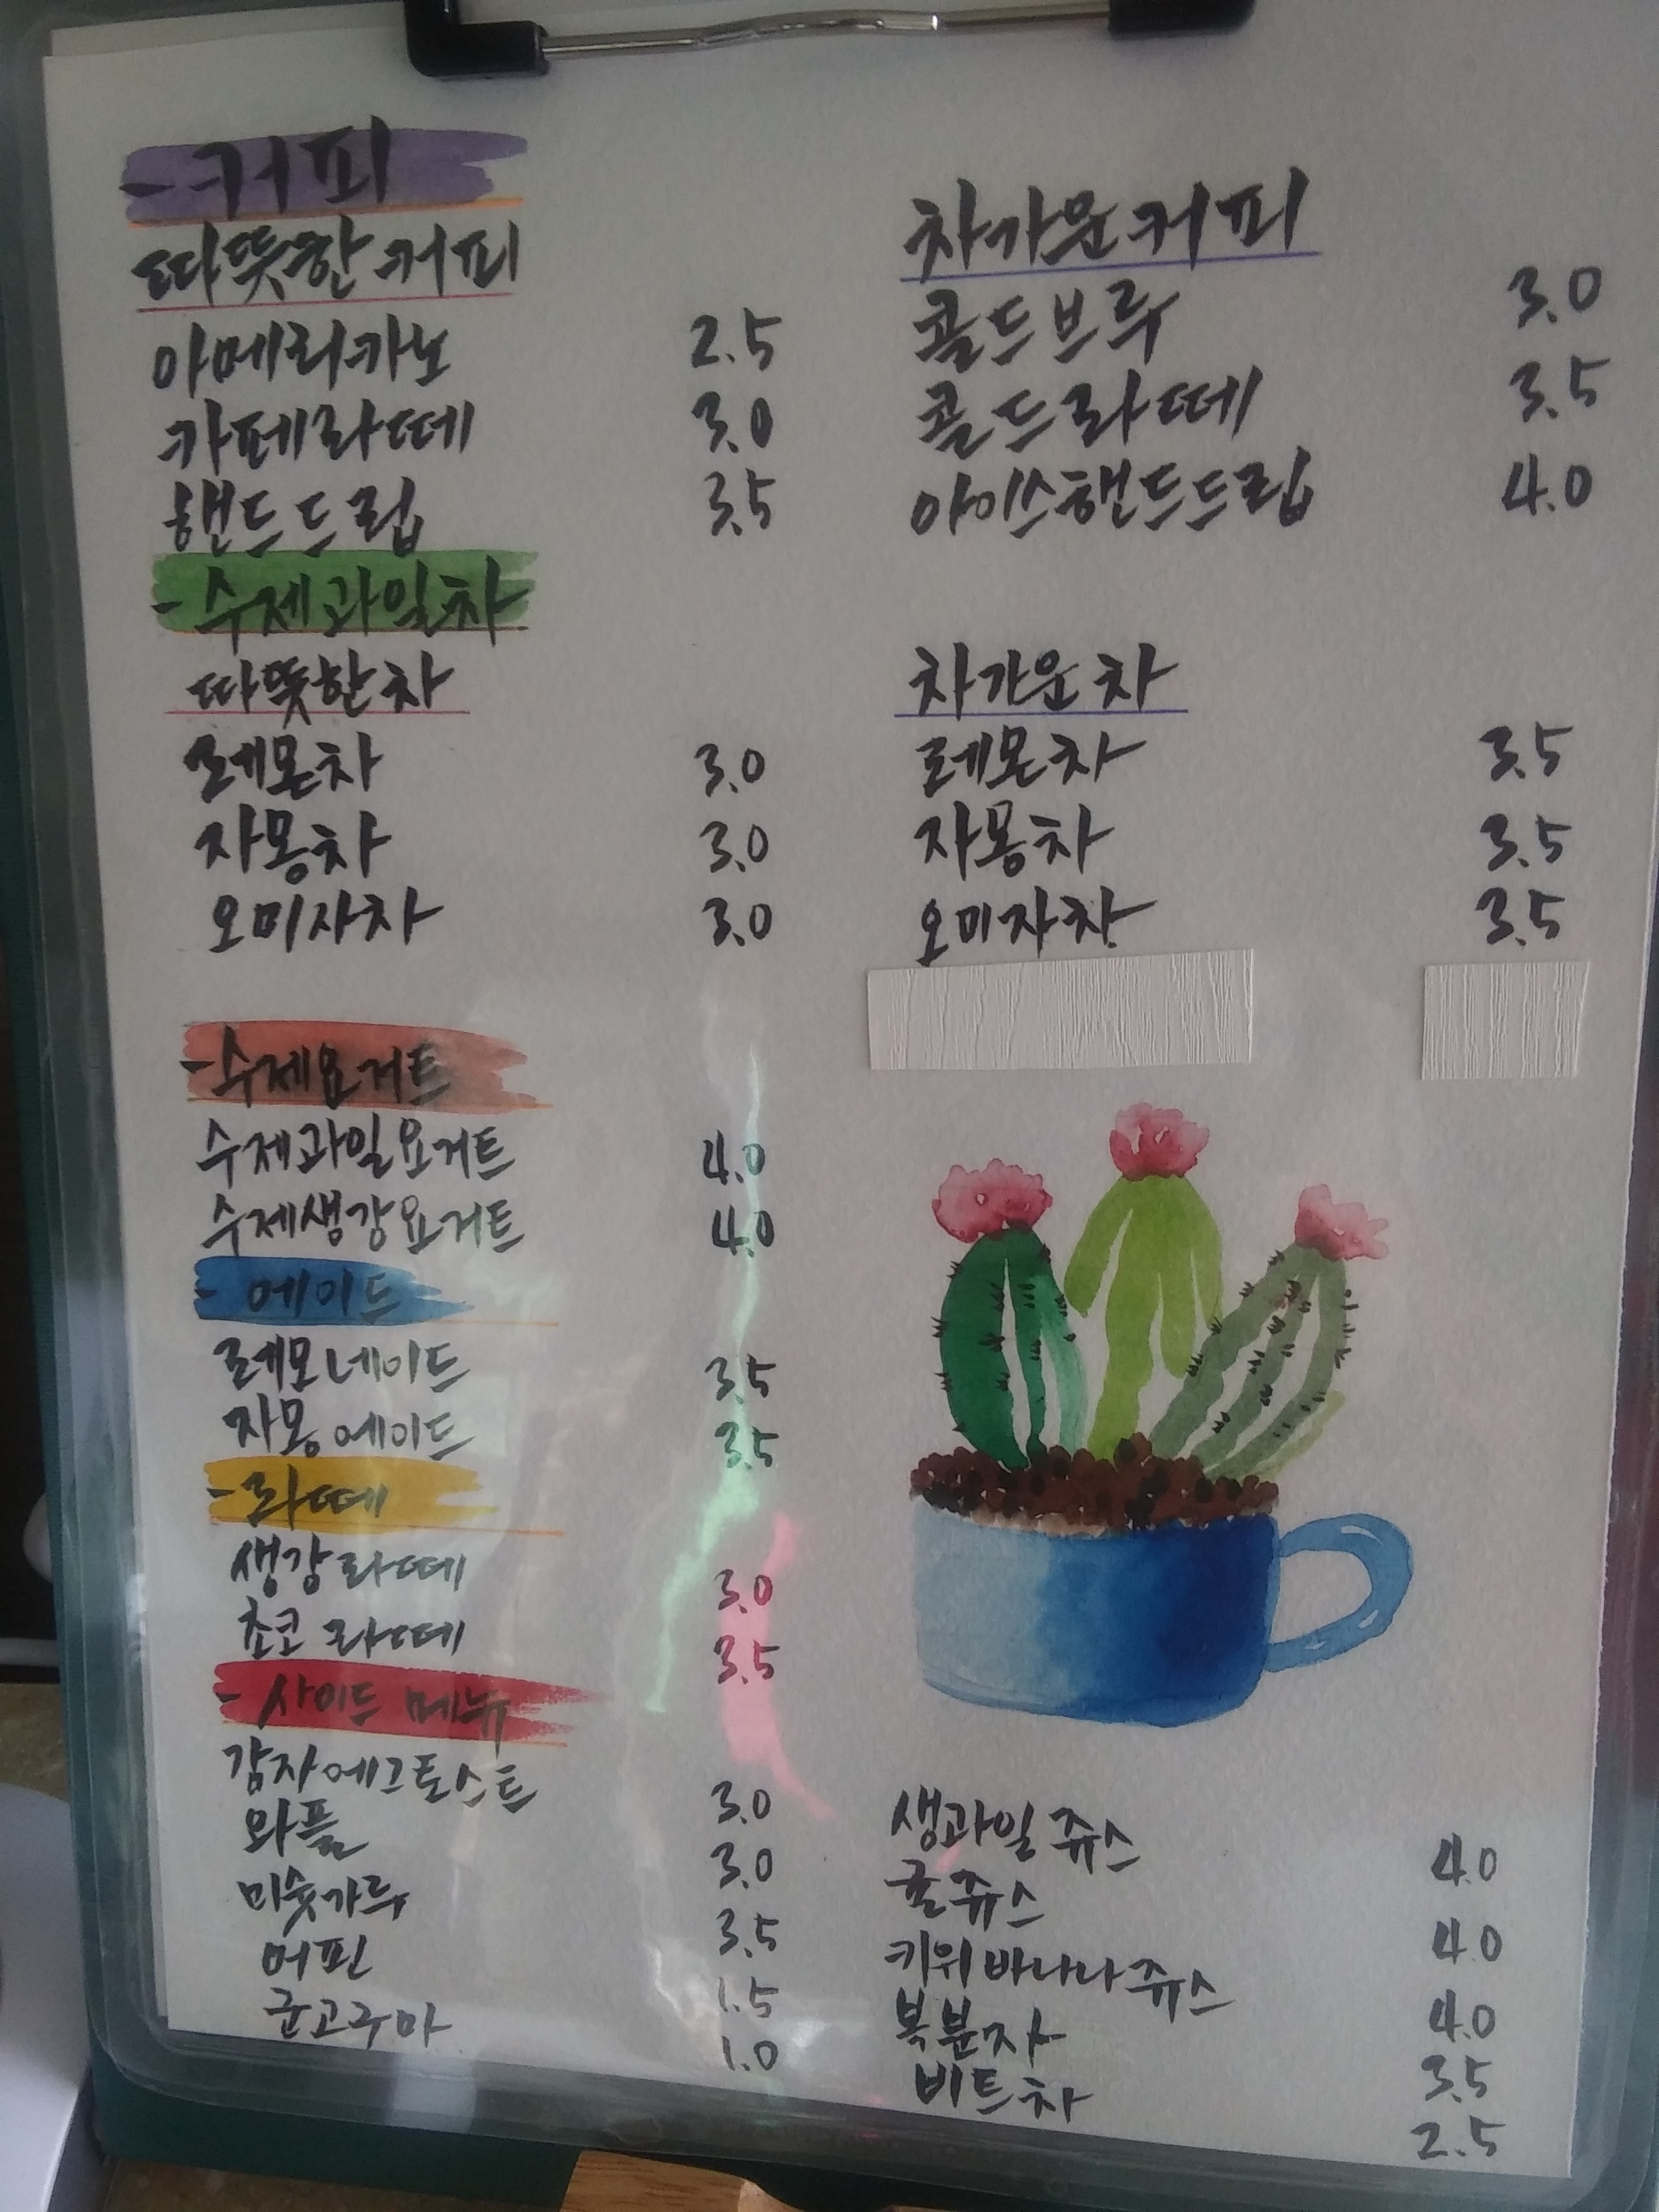 - 커피
따뜻한 커피
아메리카노 2.5
카페라떼 3.0
핸드드립 3.5
차가운 커피
콜드브루 3.0
콜드라떼 3.5
아이스핸드드립 4.0
- 수제과일차
따뜻한 차
레몬차 3.0
자몽차 3.0
오미자차 3.0
차가운 차
레몬차 3.5
자몽차 3.5
오미자차 3.5
- 수제요거트
수제과일요거트 4.0
수제생강요거트 4.0
- 에이드
레모네이드 3.5
자몽에이드 3.5
- 라떼
생강라떼 3.0
초코라떼 3.5
- 사이드 메뉴
감자에그토스트 3.0
와플 3.0
미숫가루 3.5
머핀 1.5
군고구마 1.0
생과일 쥬스 4.0
귤쥬스 4.0
키위바나나쥬스 4.0
복분자 3.5
비트차 2.5